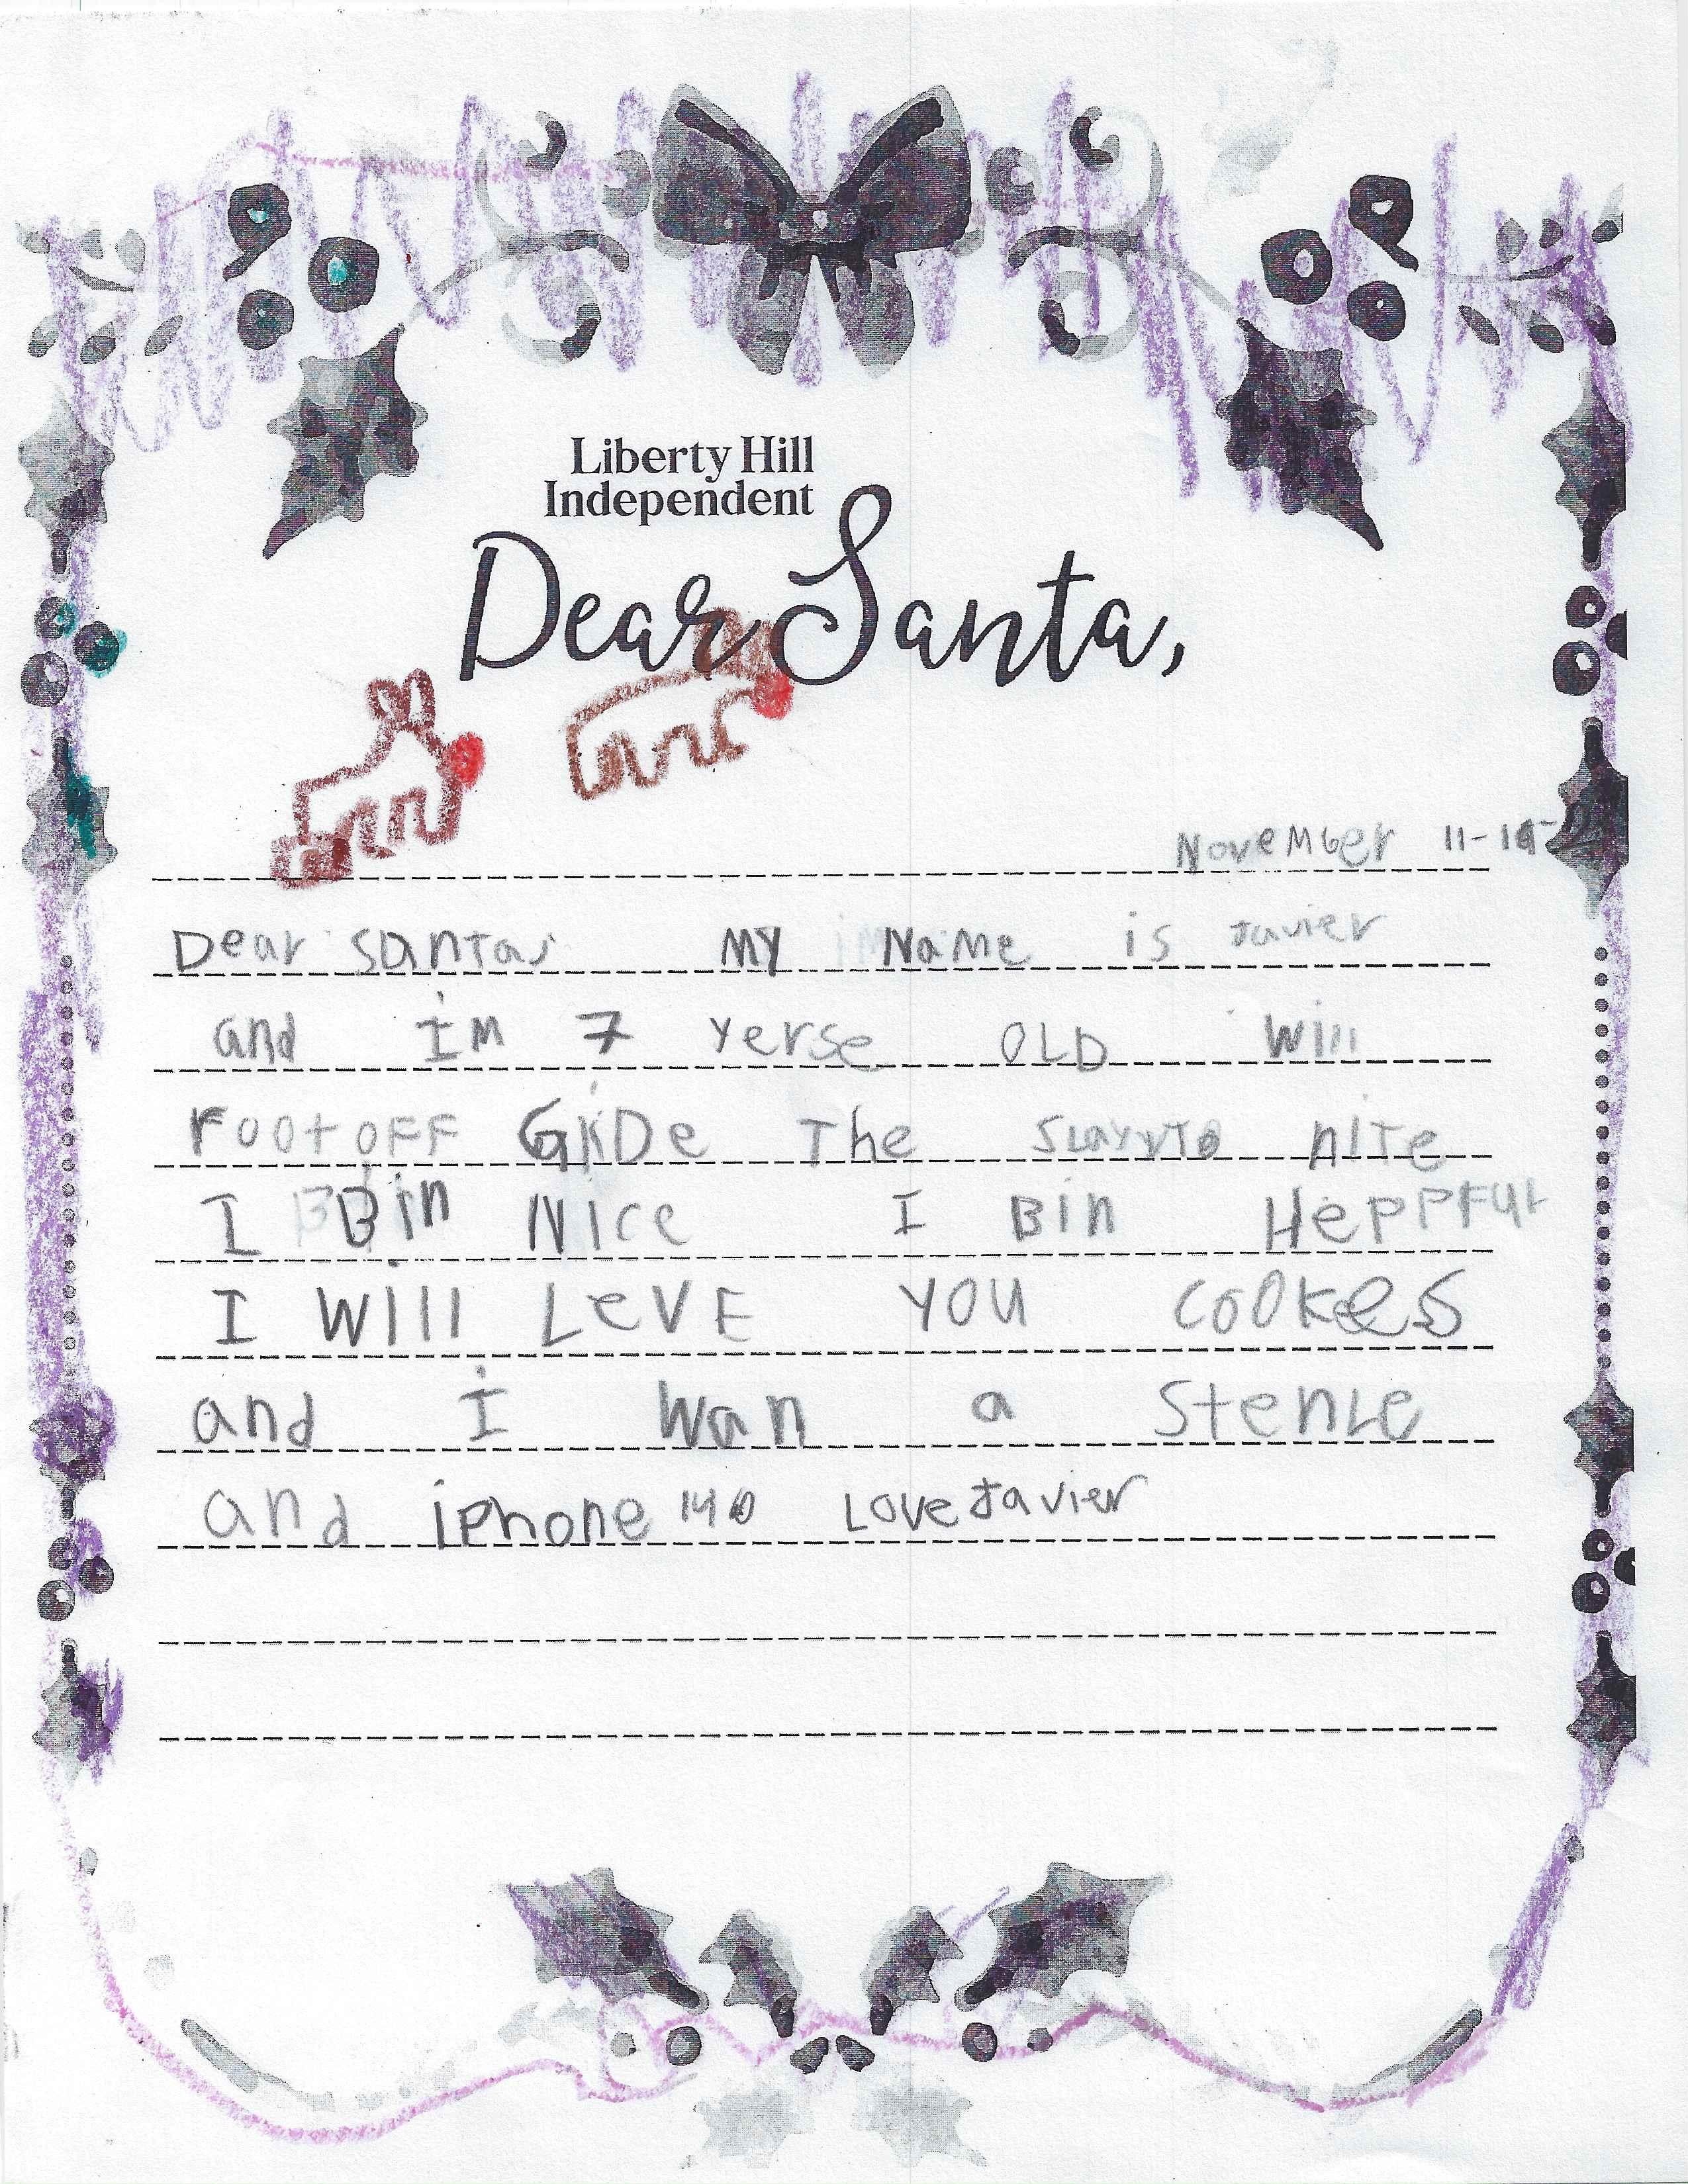 Liberty Hill
Independent
Dear Santa,
November 11-19-
Dear Santa, My Name is Javier
and im 7 yerse OLD Will
rootoFF GiDe The nite
I Bin Nice I Bin HePPFul
I Will LeVE you cookes
and i wan a Stenle
and iphone 14 Love Javier